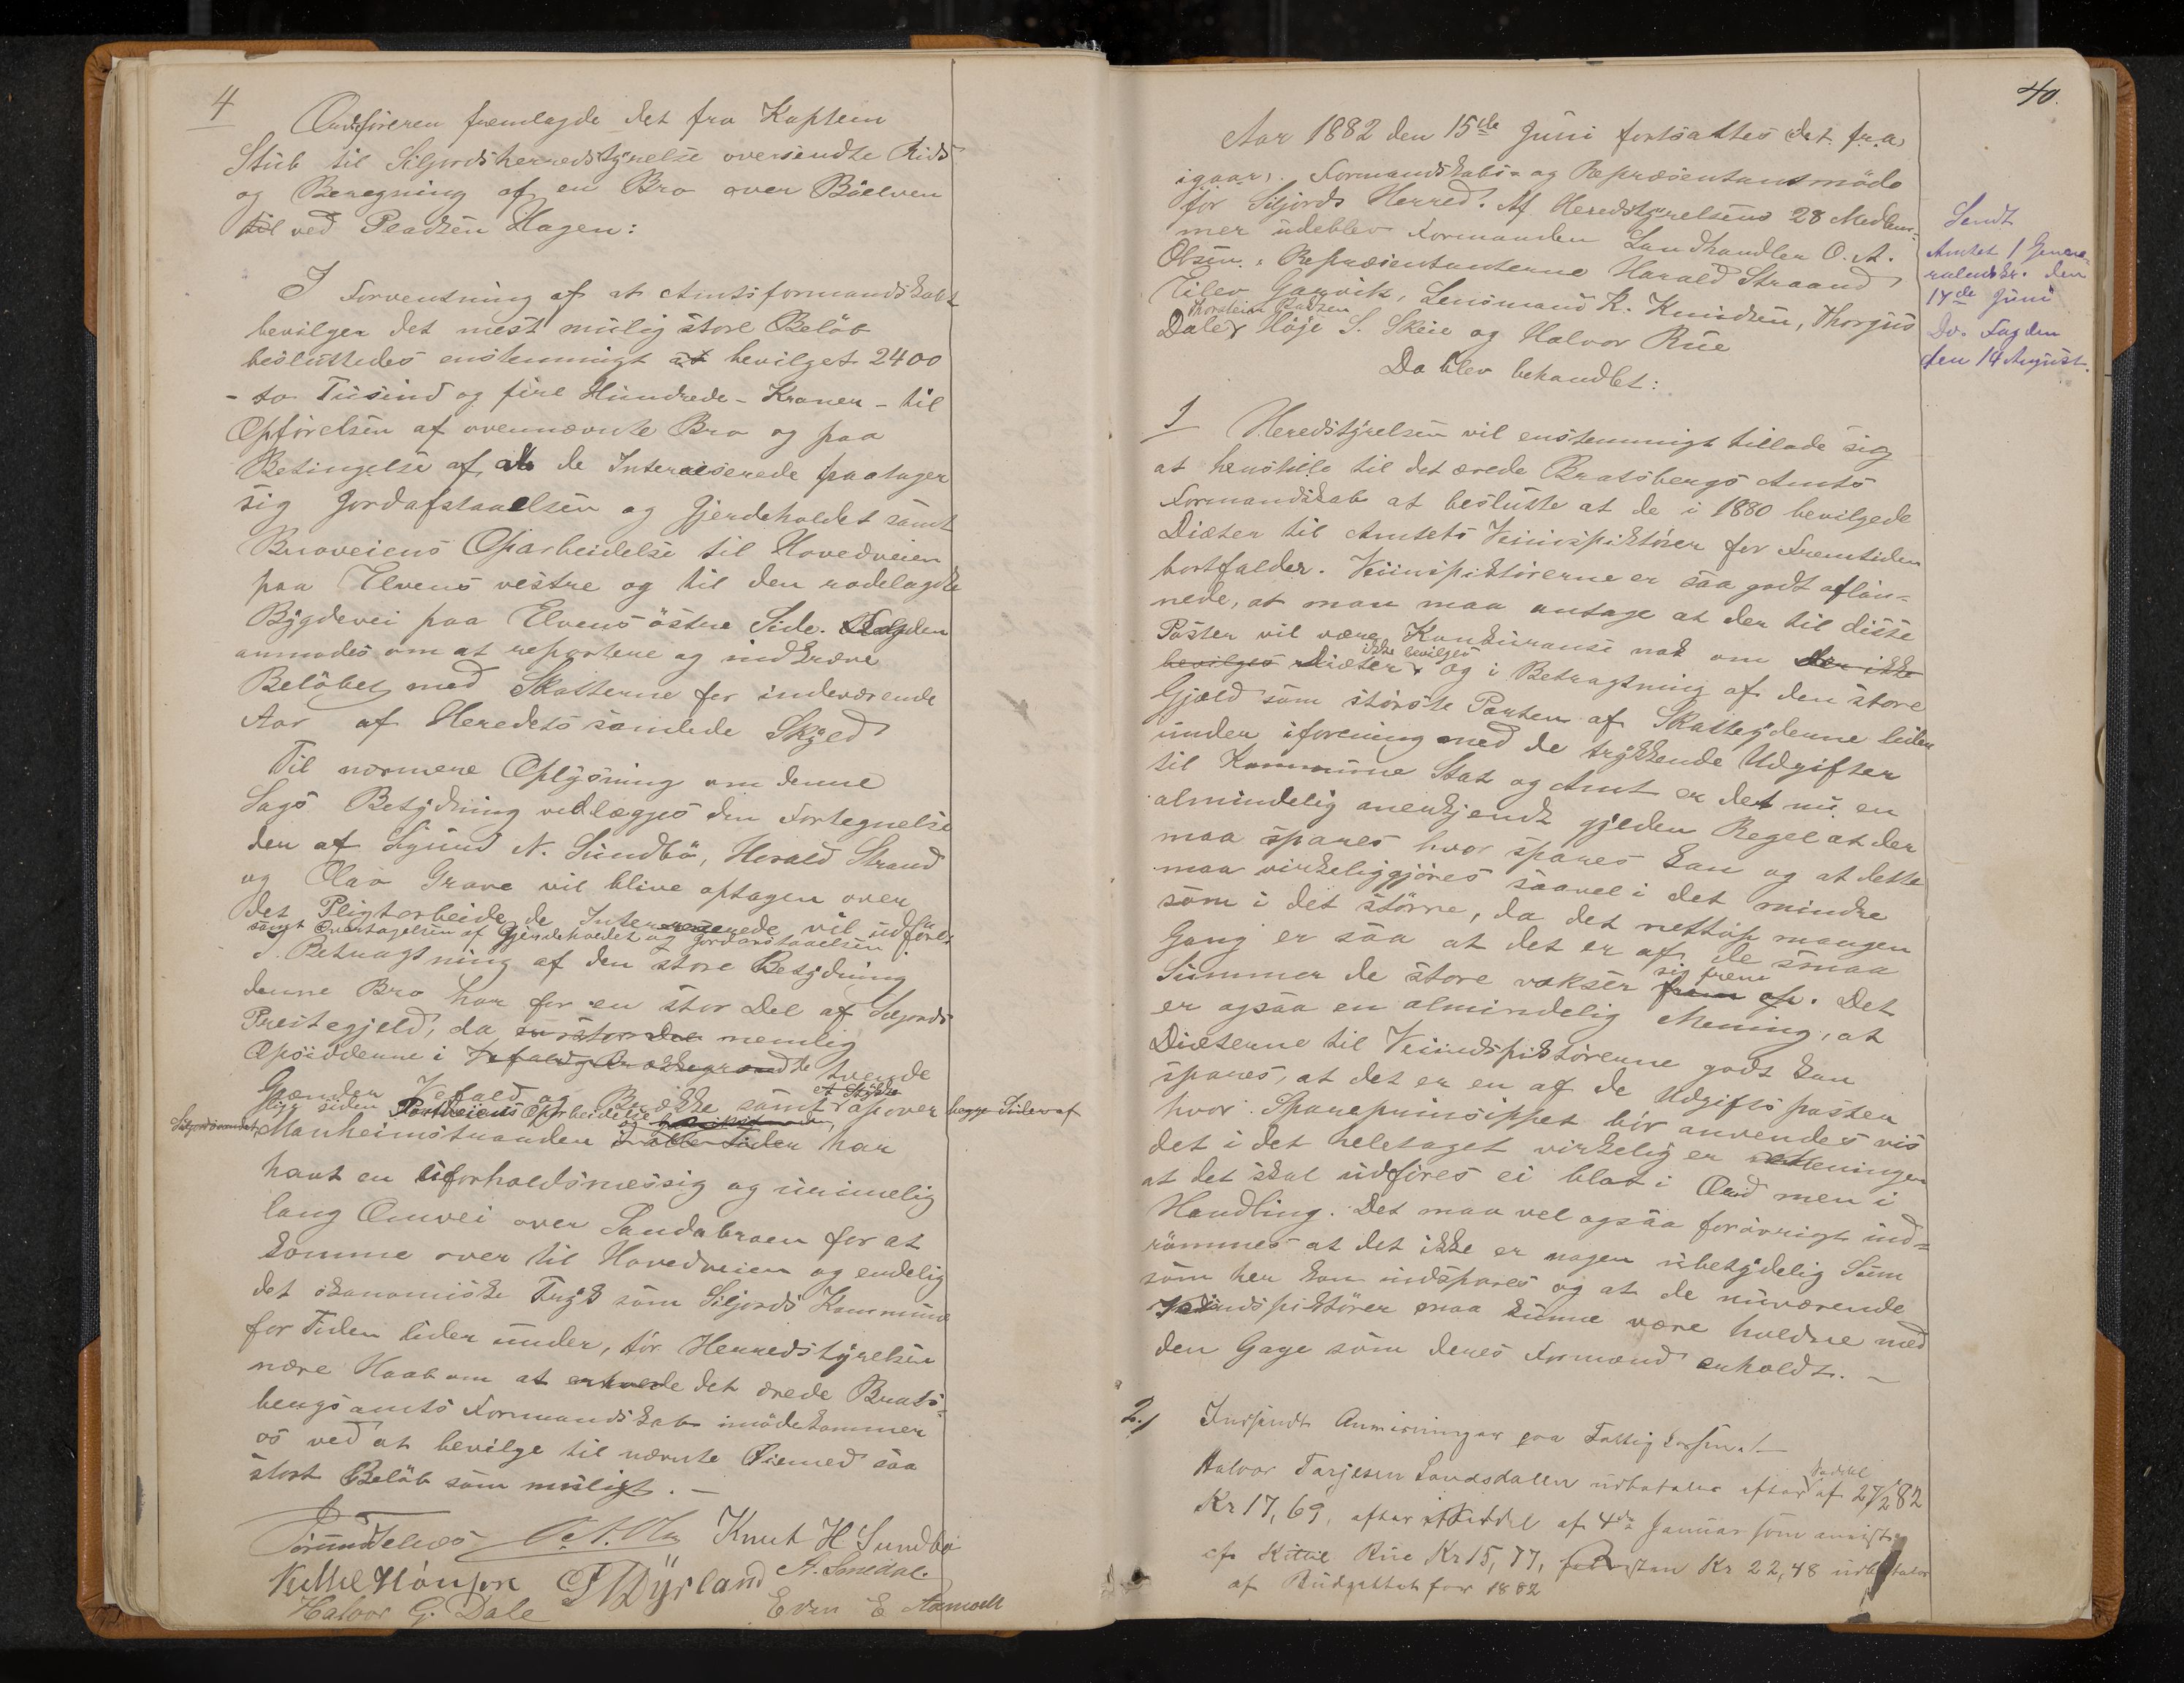 4
Ordføreren fremlagde det fra Kaptein
Stub til Siljords herredstyrelse oversendte Rids
og Beregning af en Bro over Böelven
til ved Peadsen Hagen:
I Forventning af at Amtsformandskabet
bevilger det mest mulig store Belöb
besluttedes enstemmigt at bevilget 2400
- to Tusind og fire Hundrede - Kroner - til
Opförelsen af ovennævnte Bro og paa
Betingelse af at de Interesserede paatager
sig Jordafstaaelsen og Gjerdeholdet samt
Broveiens Oparbeidelse til Hovedveien
paa Elvens vestre og til den rodelagdte
Bygdevei paa Elvens östre Side. Fogden
anmodes om at repartere og indkræve
Belöbet med Skatterne for indeværende
Aar af Heredets samlede Skyld
Til nærmere Oplysning om denne
Sags Betydning vedlægges den Fortegnelse
der af Sigurd N. Sundbö, Herald Strand
og Olav Grave vil blive optagen over
det Pligtarbeide de Interesserede vil udföre
samt Overtagelsen af Gjerdeholdet og Jordafstaaelsen
I Betragtning af den store Betydning
denne Bro har for en stor Del af Siljords
Prestegjeld, da en stor Del nemlig
Opsidderne i de tvende
Grænder Vefald og Brække samt et Stykke op over begge Sider af
lige siden Oparbeidelse
Siljordsvandet, Manheimstranden i alle Tider har
havt en uforholdsmessig og urimelig
lang Omvei over Sandabroen for at
komme over til Hovedveien og endelig
det ökonomiske Tryk som Siljords Kommune
for Tiden lider under, tör Herredstyrelsen
nære Haab om at det ærede Brats-
bergs amts Formandskab imödekommer
os ved at bevilge til nævnte Öiemed saa
stort Belöb som muligt. -
O. A. Knut H Sundbö
Kittel Hönsen Dyrland A. Smedal.
Halvor G. Dale Even E Aamodt
40.
Aar 1882 den 15de Juni fortsattes det fra
igaar. Formandskabs- og Repræsentantmöde
för Siljords Herred. Af Heredstyrelsens 28 Medlem-
mer udeblev Formanden Landhandler O. A.
Olsen. Repræsentanterne Harald Straand
Tilev Garvik, Lensmand K. Knudsen, Thorgus
Thorstein
Dale, Höje S. Skeie og Halvor Rue
Da blev behandlet:
Sendt
Amtet / Gene-
ralendr. den
17de Juni
Do. Fogden
den 14 August.
1 Heredstyrelsen vil enstemmigt tillade sig
at henstille til det ærede Bratsbergs Amts
Formandskab at beslutte at de i 1880 bevilgede
Diæter til Amtets Veiinspektörer for Fremtiden
bortfalder. Veiinspektörerne er saa godt aflön-
nede, at man maa antage at der til disse
Poster vil være Konkuranse nok om der ikke
bevilges Diæter ikke bevilges og i Betragtning af den store
Gjæld som störste Parten af Skatteyderne lider
under iforening med de trykkende Udgifter
til Kommune Stat og Amt er det nu en
almindelig anerkjendt gjelden Regel at der
maa spares hvor spares kan og at dette
maa virkeliggjöres saavel i det mindre
som i det större, da det nettop mangen
Gang er saa at det er af de smaa
Summer de store vokser sig frem op. Det
er ogsaa en almindelig Mening, at
Diæterne til Veiindspektörerne godt kan
spares, at det er en af de Udgiftsposter
hvor Spareprinsippet bör anvendes vis
det i det heletaget virkelig er Meningen
at det skal udföres ei blot i Ord men i
Handling. Det maa vel ogsaa forövrigt ind-
römmes at det ikke er nogen ubetydelig Sum
som her kan indspares og at de nuværende
Veiindspektörer maa kunne være holdne med
den Gage som deres Formænd erholdt. -
2./ Indsendt Anvisninger paa Fattigkassen:/-
Halvor Tarjesen Landsdalen udbetales efter Seddel af 27/2 82
Kr 17,69, efter Seddel af 4de Januar som anvist
af Kittil Rue Kr 15,77, Kr 22,48 udbetales
af Budgettet for 1882